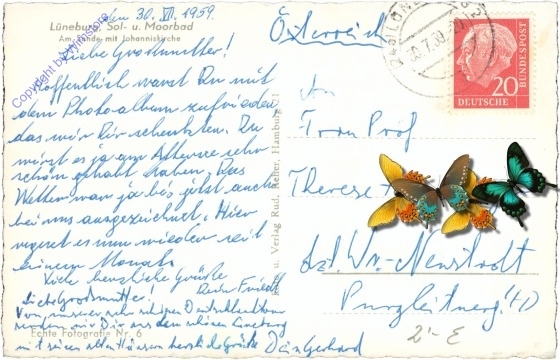 den 30. VII. 1959.
Lüneburg, Sol- u. Moorbad
Am Sande mit Johanniskirche
Copyright by wymstore
Liebe Großmutter!
Hoffentlich warst Du mit
dem Photoalbum zufrieden
das wir Dir schenkten. Du
wirst es ja am Attersee sehr
schön gehabt haben. Das
Wetter war ja bis jetzt auch
bei uns ausgezeichnet. Hier
regnet es nun wieder seit
einem Monat.
Viele herzliche Grüße
Dein Friedl
Liebe Großmutter!
Von unserer sehr schönen Deutschlandtour
senden wir Dir aus dem schönen Lüneburg
mit seinen alten Häusern herzliche Grüße
Dein Gerhard
Echte Fotografie Nr. 6
u. Verlag Rud. Reher, Hamburg 1
Österreich
DEUTSCHE
BUNDESPOST
20
An
Frau Prof
Therese
Wr.-Neustadt
2'-E